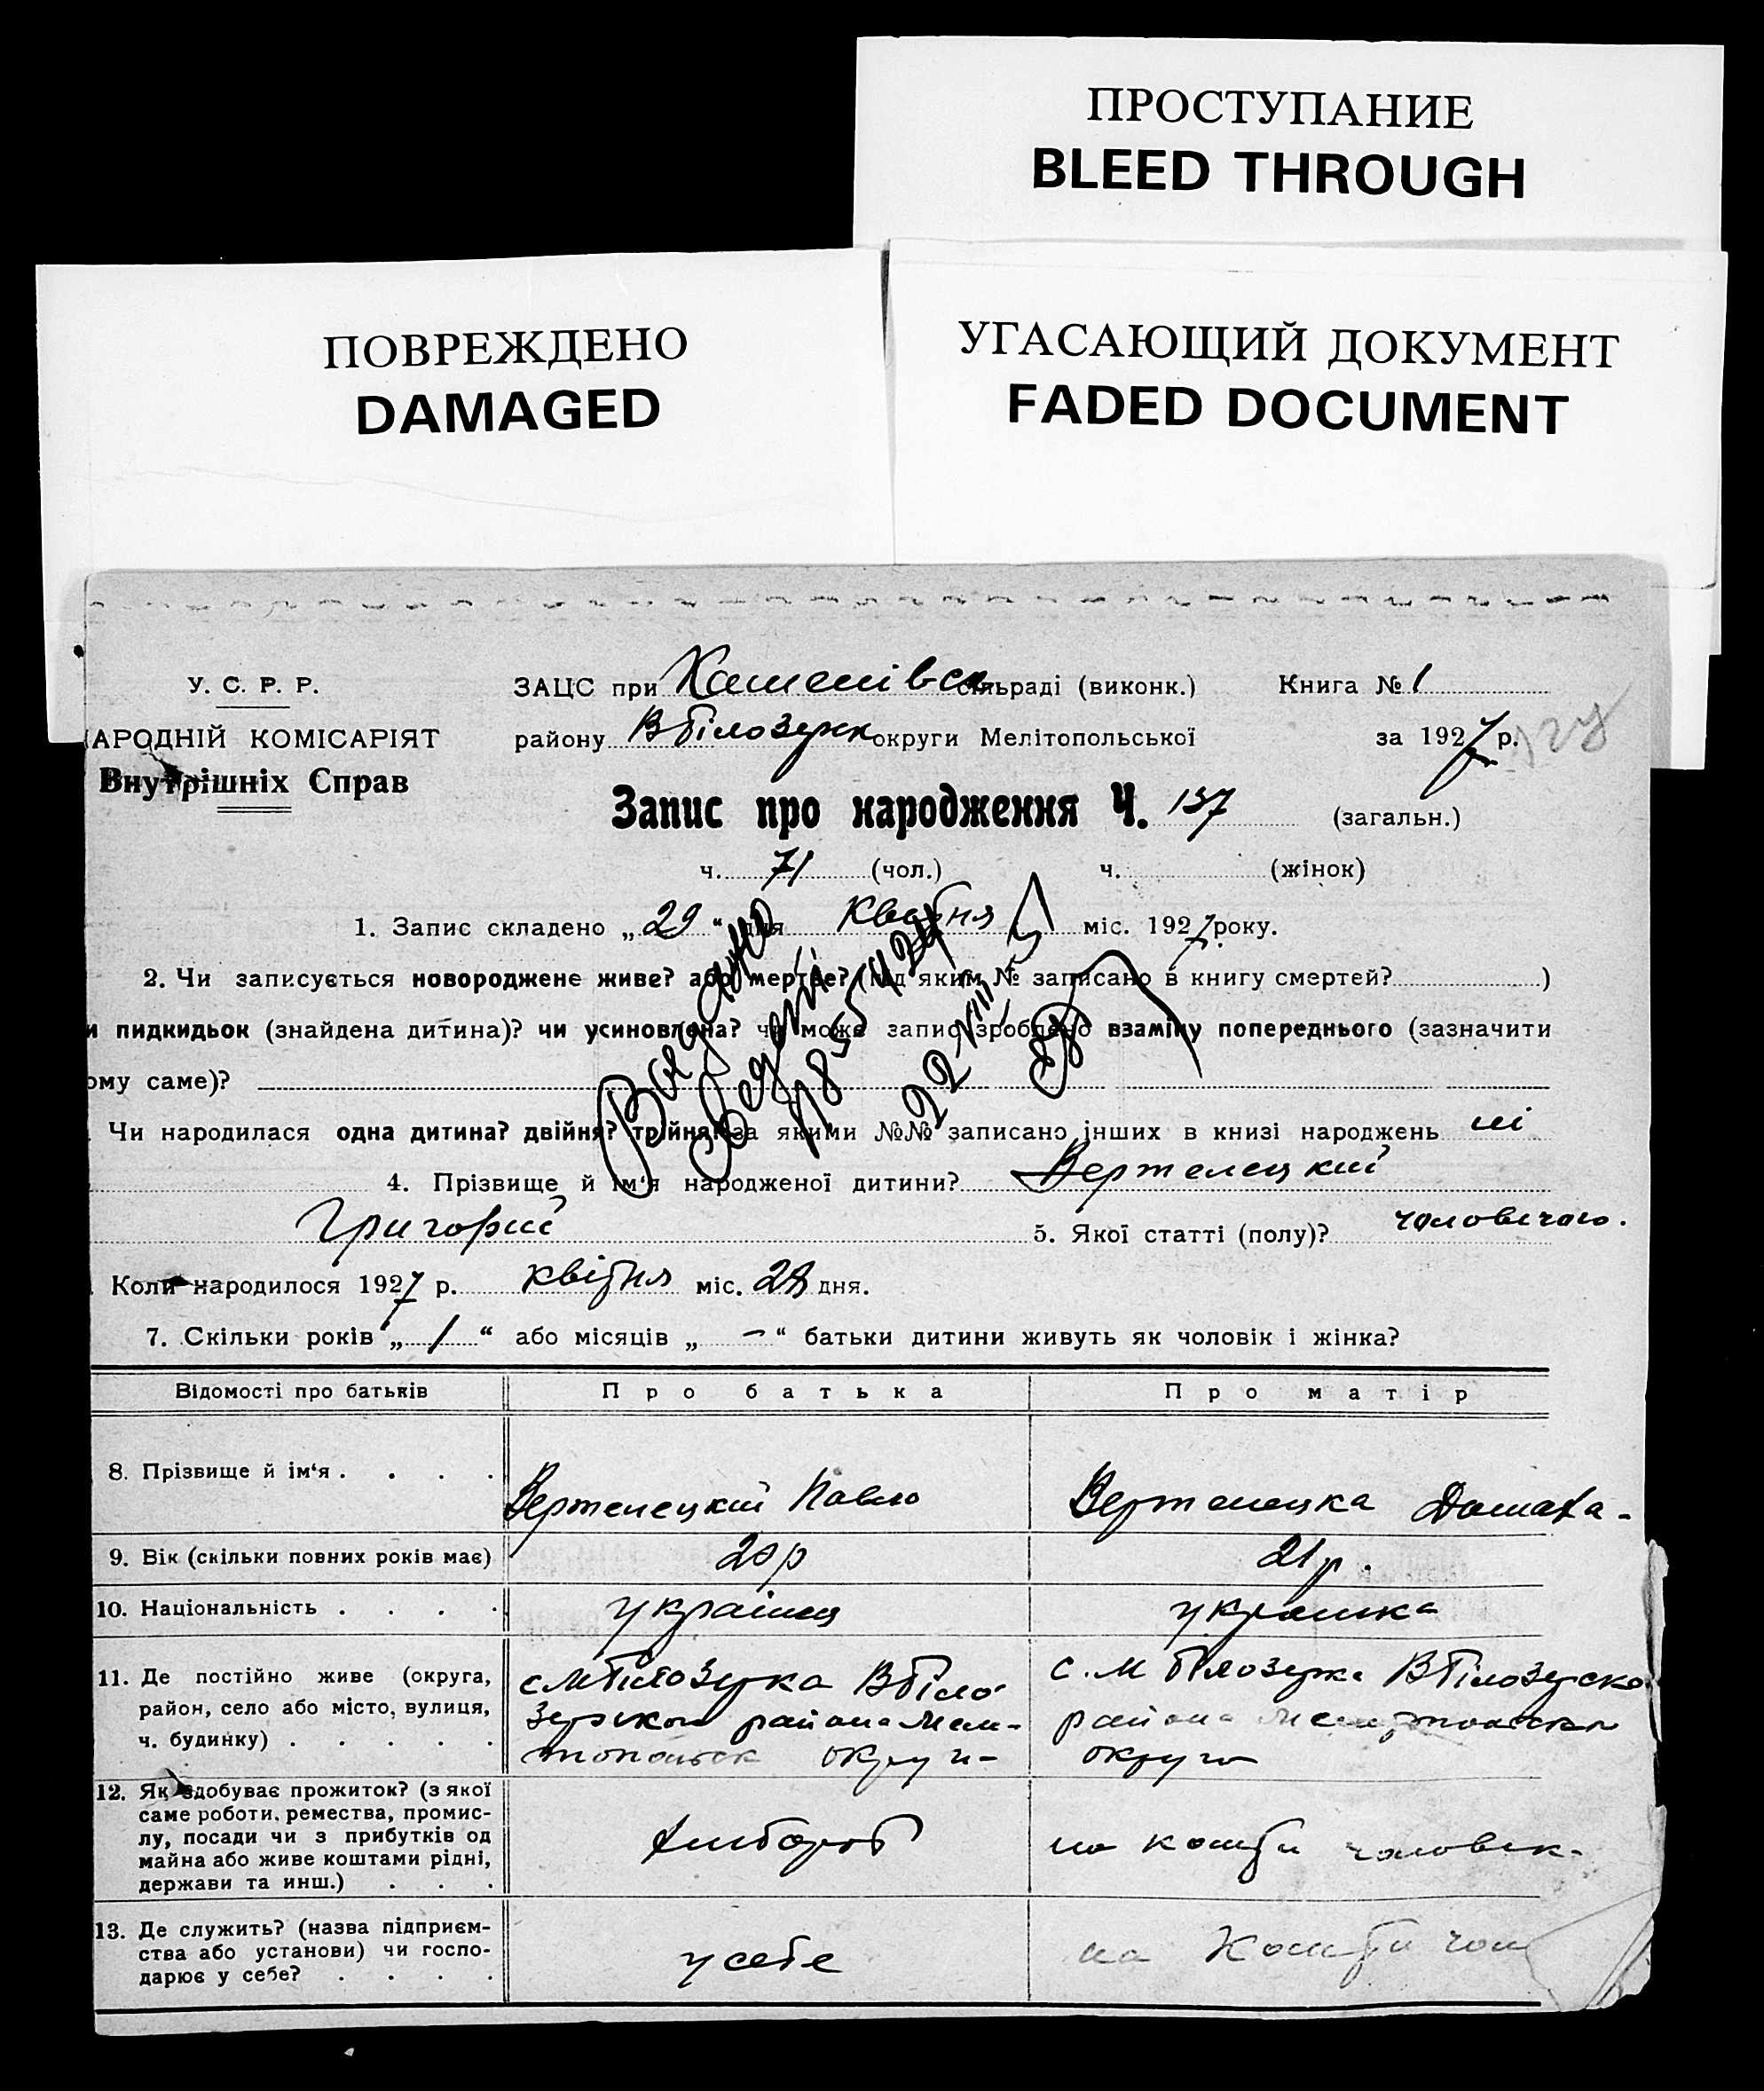 ПРОСТУПАНИЕ
BLEED THROUGH
ПОВРЕЖДЕНО
DAMAGED
УГАСАЮЩИЙ ДОКУМЕНТ
FADED DOCUMENT
У. С. Р. Р.
АРОДНІЙ КОМІСАРІЯТ
Внутрішніх Справ
ЗАЦС при Каменівск сільраді (виконк.) Книга № 1
району ВБілозерк округи Мелітопольської за 1927 р.
Запис про народження Ч. 137 (загальн.)
ч. 71 (чол.) ч. (жінок)
1. Запис складено „29“ дня Квітня міс. 1927 року.
2. Чи записується новороджене живе? або мертве? (під яким № записано в книгу смертей? )
и пидкидьок (знайдена дитина)? чи усиновлена? чи може запис зроблено взаміну попереднього (зазначити
ому саме)?
Чи народилася одна дитина? двійня? трійня? за якими №№ записано інших в книзі народжень ні
4. Прізвище й ім‘я народженої дитини? Вертелецкий
Григорий 5. Якої статті (полу)? чоловічого.
Коли народилося 1927 р. квітня міс. 28 дня.
7. Скільки років „ 1 “ або місяців „ – “ батьки дитини живуть як чоловік і жінка?
Відомості про батьків Про батька Про матір
8. Прізвище й ім‘я . . . . Вертелецкий Павло Вертелецка Домаха -
9. Вік (скільки повних років має) 20 р 21 р.
10. Національність . . . . українец українка
11. Де постійно живе (округа,
район, село або місто, вулиця,
ч. будинку) . . . . .
с МБілозерка ВБіло
зерском района Мели-
топольск округи-
с. М Білозерка ВБілозерско
района Мелитопольскои
округи
12. Як здобуває прожиток? (з якої
саме роботи, ремества, промис-
лу, посади чи з прибутків од
майна або живе коштами рідні,
держави та инш.) . . .
хлібороб
на кошти чоловік.
13. Де служить? (назва підприєм-
ства або установи) чи госпо-
дарює у себе? . . . .
у себе
на кошти чол